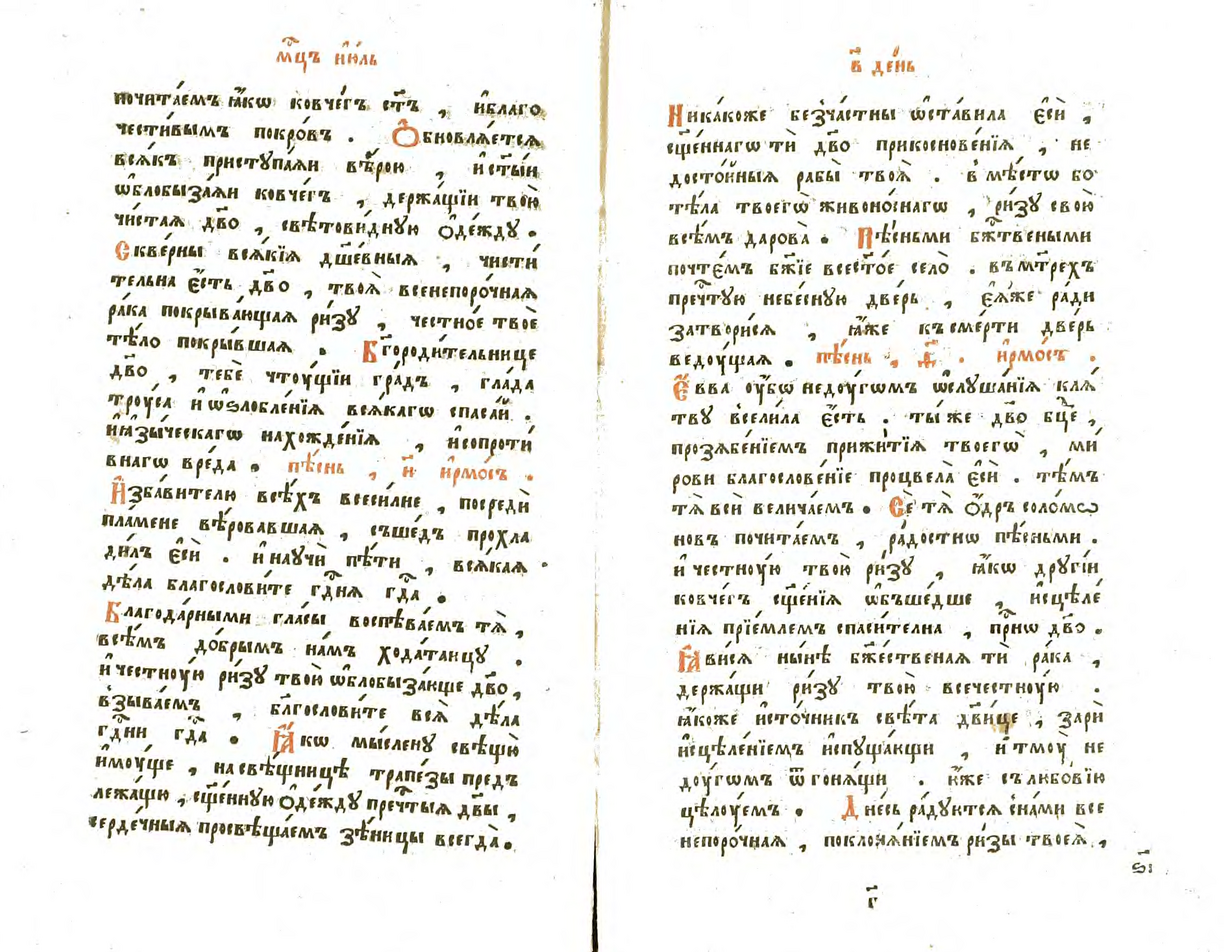 мц҃ъ ию́ль
почита́емъ ꙗ҆́кѡ ковче́гъ ст҃ъ , и҆благо
чести́вымъ покро́въ . Ѻ҆бновлѧ́етсѧ
всѧ́къ приступа́ѧи вѣ́рою , и҆ ст҃ы́и
ѡ҆блобыза́ѧи ковче́гъ , держа́щїи твою̀
чи́стаѧ дв҃о , свѣтови́дную ѻ҆де́жду .
Скве́рны всѧ́кїѧ дш҃е́вныѧ , чисти
тельна є҆́сть дв҃о , твоѧ̀ всенепоро́чнаѧ
ра́ка покрыва́ющаѧ ри́зу , честно́е твоѐ
тѣ́ло покры́вшаѧ . Бг҃ороди́тельнице
дв҃о , тебѐ чтоу́щїи гра́дъ , гла́да
троу́са и҆ ѡ҆ѕлобле́нїѧ всѧ́кагѡ спаса́й .
и҆ ꙗ҆зы́ческагѡ нахожде́нїѧ , и҆сопроти
внагѡ вре́да . пѣ́снь , и҃ и҆рмо́съ .
И҆зба́вителю всѣ́хъ всеси́лне , посредѝ
пла́мене вѣ́ровавшаѧ , съше́дъ прохла
ди́лъ є҆сѝ . и҆ научѝ пѣ́ти , всѧ́каѧ
дѣ́ла благослови́те гд҃нѧ гд҃а .
Благода́рными гла́сы воспѣва́емъ тѧ̀ ,
всѣ́мъ до́брымъ на́мъ хода́таицу .
и҆ честноу́ю ри́зу твою̀ ѡ҆блобыза́юще дв҃о ,
взыва́емъ , бл҃гослови́те всѧ̀ дѣ́ла
гд҃ни гд҃а . Ꙗ҆́кѡ мы́слену свѣщю̀
и҆моу́ще , на свѣ́щницѣ трапе́зы предъ
лежа́щю , сщ҃е́нную ѻ҆де́жду пречⷭ҇тыѧ дв҃ы ,
серде́чныѧ просвѣща́емъ зѣ́ницы всегда̀ .
в҃ де́нь
Никакоже безча́стны ѡ҆ста́вила є҆сѝ ,
сщ҃е́ннагѡ ти̏ дв҃о прикоснове́нїѧ , не
досто́йныѧ рабы̀ твоѧ̀ . в мѣ́стѡ бо
тѣ́ла твоегѡ̀ живоно́снагѡ , ри́зу свою̀
всѣ́мъ дарова̀ . Пѣ́сньми бж҃твеными
почте́мъ бж҃їе всест҃о́е село̀ . въ мт҃рехъ
пречⷭ҇тую небе́сную две́рь , є҆ѧ́же ра́ди
затвори́сѧ , ꙗ҆́же къ сме́рти две́рь
ведоу́щаѧ . пѣ́снь , д҃ . и҆рмо́съ .
Є҆́вва оу҆́бѡ недоу́гомъ ѡ҆слуша́нїѧ клѧ́
тву всели́ла є҆́сть . ты́ же дв҃о бц҃е ,
прозѧбе́нїемъ прижи́тїѧ твоегѡ̀ , ми́
рови благослове́нїе процвела̀ є҆сѝ . тѣ́мъ
тѧ̀ всѝ велича́емъ . Се́ тѧ ѻ҆́дръ соло́мѡ
новъ почита́емъ , ра́достию пѣ́сньми .
и҆ честноу́ю твою̀ ри́зу , ꙗ҆́кѡ дру́гїи
ковче́гъ сщ҃е́нїѧ ѡ҆бъше́дше , и҆сцѣле́
нїѧ прїе́млемъ спаси́телна , прⷭ҇нѡ дв҃о .
Ꙗ҆ви́сѧ ны́нѣ бж҃е́ственаѧ ти̏ ра́ка ,
держа́щи ри́зу твою̀ всечестноу́ю .
ꙗ҆́коже и҆сто́чникъ свѣ́та дв҃и́це , зари̏
и҆сцѣле́нїемъ и҆спуща́ющи , и҆ тмоу̀ не
доу́гомъ ѿ гонѧ́щи . ю҆́же съ любо́вїю
цѣлоу́емъ . Дне́сь ра́дуютсѧ сна́ми все
непоро́чнаѧ , поклонѧ́нїемъ ри́зы твоеѧ̀ ,
ѕ҃і
г҃